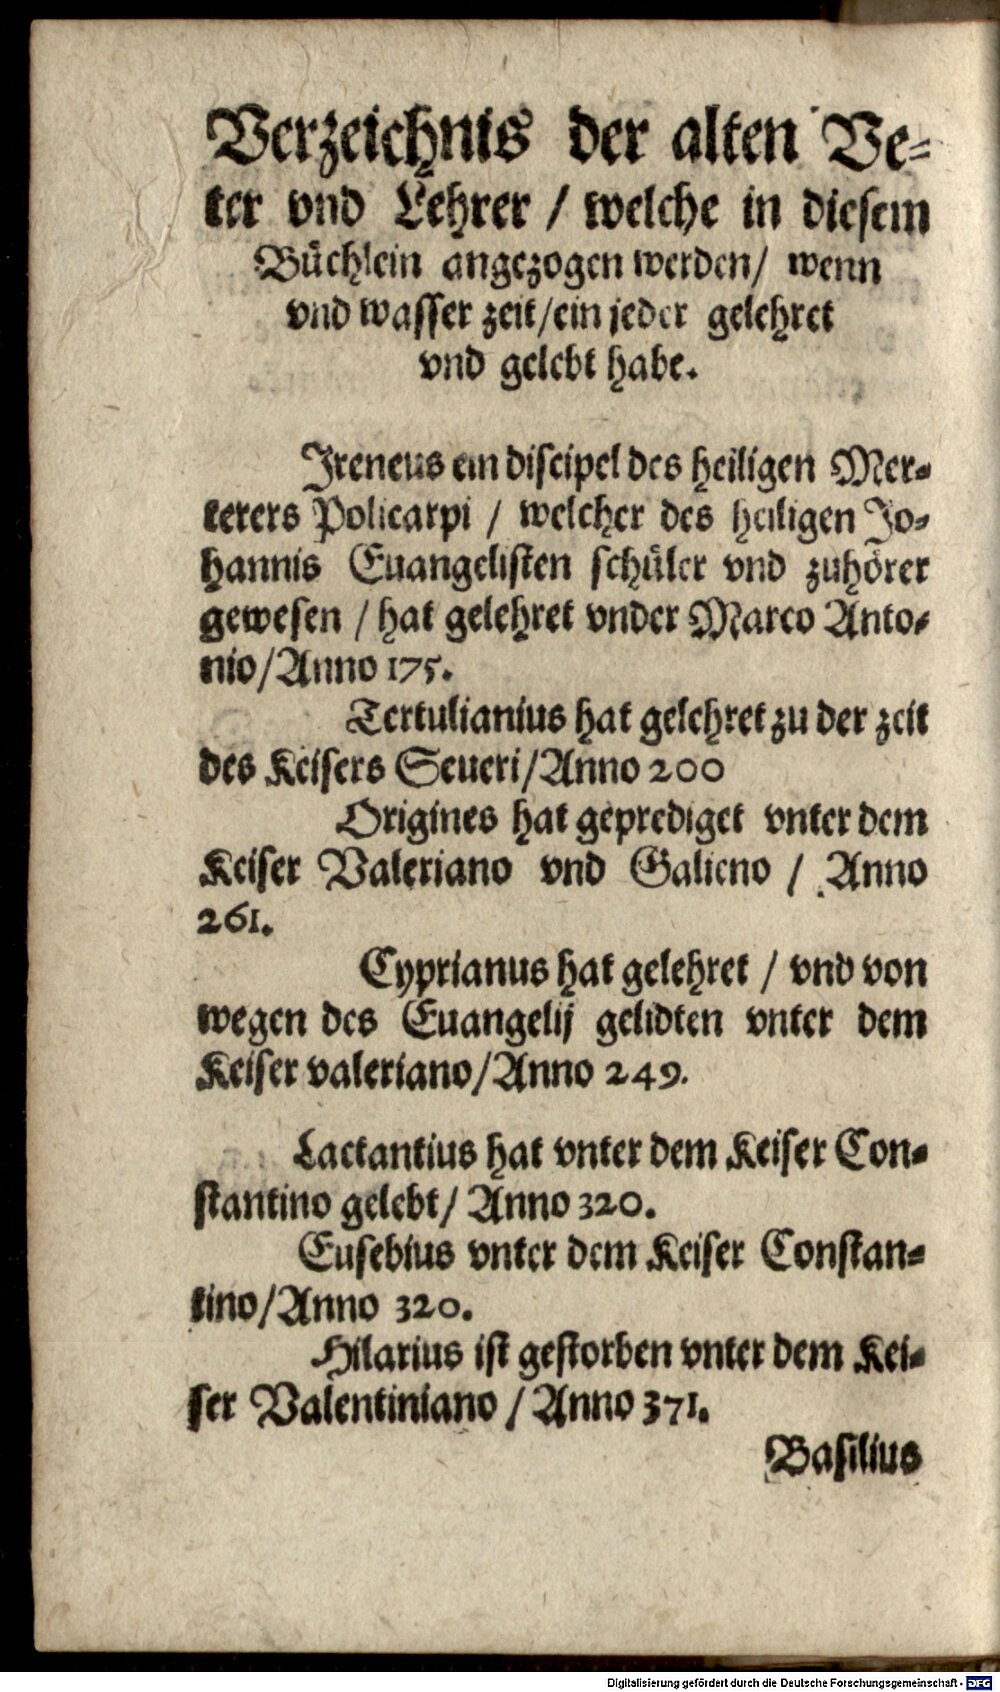 Verzeichnis der alten Ve-
ter vnd Lehrer / welche in diesem
Büchlein angezogen werden/ wenn
vnd wasser zeit/ein jeder gelehret
vnd gelebt habe.
Ireneus ein discipel des heiligen Mer-
terers Policarpi / welcher des heiligen Jo-
hannis Euangelisten schüler vnd zuhörer
gewesen / hat gelehret vnder Marco Anto-
nio/Anno 175.
Tertulianius hat gelehret zu der zeit
des Keisers Seueri/Anno 200
Origines hat geprediget vnter dem
Keiser Valeriano vnd Galieno / Anno
261.
Cyprianus hat gelehret / vnd von
wegen des Euangelij gelidten vnter dem
Keiser valeriano/Anno 249.
Lactantius hat vnter dem Keiser Con-
stantino gelebt/ Anno 320.
Eusebius vnter dem Keiser Constan-
tino/Anno 320.
Hilarius ist gestorben vnter dem Kei-
ser Valentiniano / Anno 371.
Basilius
Digitalisierung gefördert durch die Deutsche Forschungsgemeinschaft - DFG